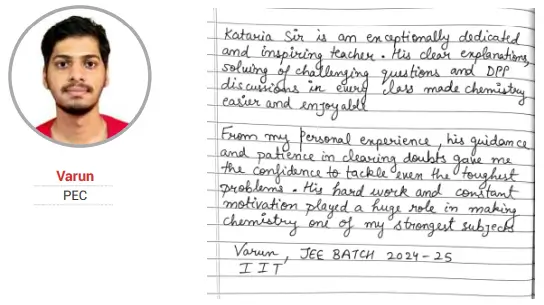 Kataria Sir is an exceptionally dedicated
and inspiring teacher. His clear explanations,
solving of challenging questions and DPP
discussions in every class made chemistry
easier and enjoyable
From my personal experience, his guidance
and patience in clearing doubts gave me
the confidence to tackle even the toughest
problems. His hard work and constant
motivation played a huge role in making
chemistry one of my strongest subjects
Varun, JEE BATCH 2024-25
IIT
Varun
PEC